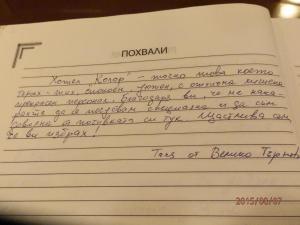 ПОХВАЛИ
Хотел "Колор" - точно това което
търсих - тих, спокоен, уютен, с отлична кухня и
прекрасен персонал. Благодаря ви, че не
да се чувствам и да съм
почивката си тук. Щастлива съм,
че ви избрах!
от Велико Търново
2015/08/07